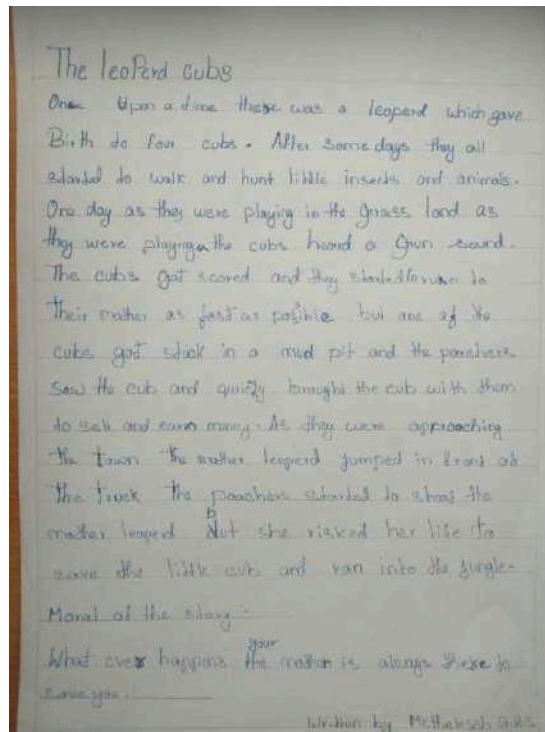 The leoperd cubs
One Upon a time there was a leoperd which gave
Birth to four cubs. After some days they all
started to walk and hunt little insects and animals.
One day as they were playing in the grass land as
they were playing the cubs heard a Gun sound.
The cubs got scared and they started to run to
their mother as fast as possible but one of the
cubs got stuck in a mud pit and the poachers
saw the cub and quickly brought the cub with them
to sell and earn money. As they were approaching
the town the mother leoperd jumped in front of
the truck the poachers started to shoot the
mother leoperd but she risked her life to
save the little cub and ran into the jungle.
Moral of the story :-
What ever happens your mother is always there to
save you.
Written by